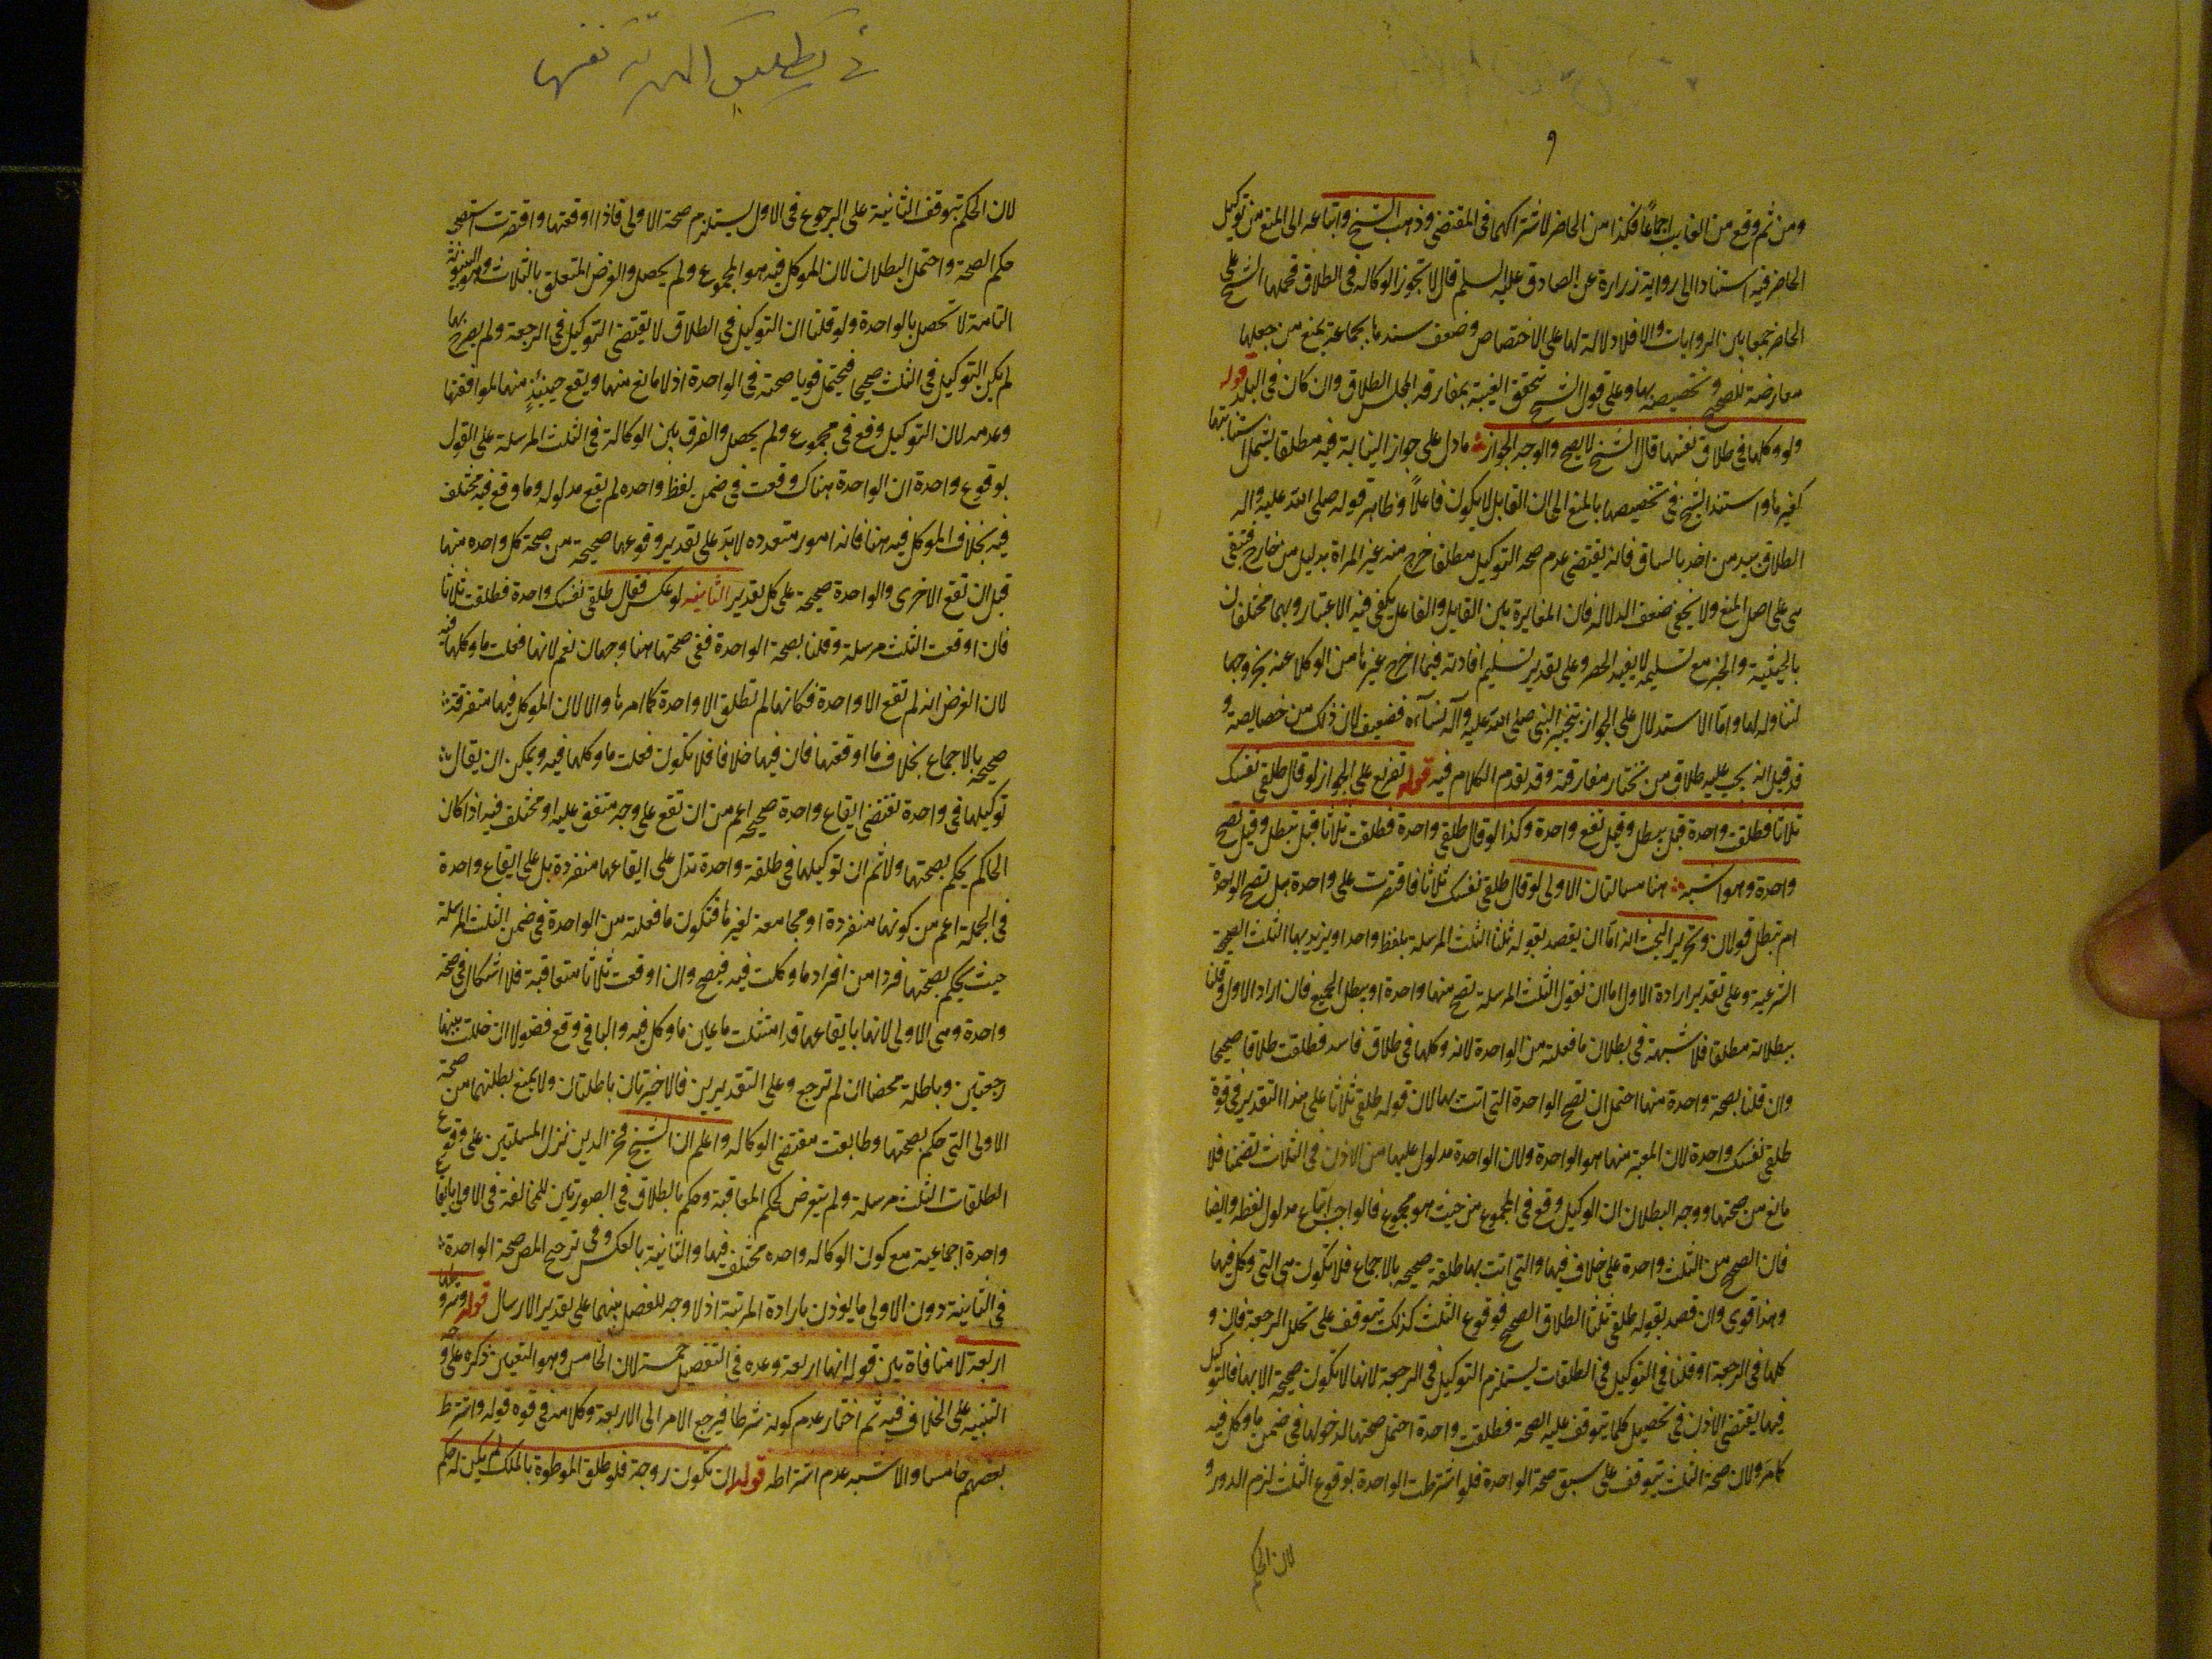 و
ومن ثم وقع من الغايب اجماعا فكذا من الحاضر لاشتراكهما فى المقتضى وذهب الشيخ واتباعه الى المنع من توكيل
الحاضر فيه استنادا الى رواية زرارة عن الصادق عليه السلم قال لا تجوز الوكاله فى الطلاق فحملها الشيخ على
الحاضر جمعا بين الروايات والا فلا دلالة لها على الاختصاص وضعف سندها بجماعة يمنع من جعلها
معارضة للصحيح وتخصيصه بها وعلى قول الشيخ تتحقق الغيبة بمفارقة مجلس الطلاق وان كان فى البلد قوله
ولو وكلها فى طلاق نفسها قال الشيخ لا يصح والوجه الجواز ما دل على جواز النيابة فيه مطلقا يشمل استنابتها
كغيرها واستند الشيخ فى تخصيصها بالمنع الى ان القابل لا يكون فاعلاً وظاهر قوله صلى الله عليه واله
الطلاق بيد من اخذ بالساق فانه يقتضى عدم صحه التوكيل مطلقا خرج منه غير المراة بدليل من خارج فتبقى
هى على اصل المنع ولا يخفى ضعف الدلاله فان المغايرة بين القابل والفاعل يكفى فيه الاعتبار وهما مختلفان
بالحيثية والخبر مع تسليمه لا يفيد الحصر وعلى تقدير تسليم افادته فيما اخرج غيرها من الوكلا عنه يخرجها
لتناوله لها واما الاستدلال على الجواز بتخيير النبى صلى الله عليه وآله نساءه فضعيف لان ذلك من خصايصه و
قد قيل انه يجب عليه طلاق من تختار مفارقته وقد تقدم الكلام فيه قوله تفريع على الجواز لو قال طلقى نفسك
ثلاثا فطلقت واحدة قيل يبطل وقيل تقع واحدة وكذا لو قال طلقى واحدة فطلقت ثلاثا قيل تبطل وقيل تصح
واحدة وهو اشبه هنا مسالتان الاولى لو قال طلقى نفسك ثلاثا فاقتصرت على واحدة هل تصح الواحدة
ام تبطل قولان وتحرير البحث انه اما ان يقصد بقوله ثلثا الثلث المرسلة بلفظ واحد او يريد بها الثلث الصحيحة
الشرعية وعلى تقدير ارادة الاول اما ان نقول الثلث المرسلة تصح منها واحدة او يبطل الجميع فان اراد الاول وقلنا
ببطلانه مطلقا فلا شبهة فى بطلان ما فعلته من الواحدة لانه وكلها فى طلاق فاسد فطلقت طلاقا صحيحا
وان قلنا بصحة واحدة منها احتمل ان تصح الواحدة التى اتت بها لان قوله طلقى ثلاثا على هذا التقدير فى قوة
طلقى نفسك واحدة لان المعتبر منها هو الواحدة ولان الواحدة مدلول عليها من الاذن فى الثلاث تضمنا فلا
مانع من صحتها ووجه البطلان ان الوكيل وقع فى المجموع من حيث هو مجموع فالواجب اتباع مدلول لفظه وايضا
فان الصحيح من الثلث واحدة على خلاف فيها والتى اتت بها طلقة صحيحه بالاجماع فلا تكون هى التى وكل فيها
وهذا قوى وان قصد بقوله طلقى ثلثا الطلاق الصحيح فوقوع الثلث كذلك يتوقف على تخلل الرجعة فان و
كلها فى الرجعة او قلنا فى التوكيل فى الطلقات يستلزم التوكيل فى الرجعة لانها لا تكون صحيحة الا بها فالتوكيل
فيها يقتضى الاذن فى تحصيل كلما يتوقف عليه الصحة فطلقت واحدة احتمل صحتها لدخولها فى ضمن ما وكل فيه
كما مر ولان صحة الثلث يتوقف على سبق صحة الواحدة فلو اشترطت الواحدة بوقوع الثلث لزم الدور و
لان الحكم
نفسها
لان الحكم بتوقف الثانية على الرجوع فى الاول يستلزم صحة الاولى فاذا اوقعتها واقتصرت استصحب
حكم الصحة واحتمل البطلان لان الموكل فيه هو المجموع ولم يحصل والغرض المتعلق بالثلاث وهو البينونة
التامة لا تحصل بالواحدة ولو قلنا ان التوكيل فى الطلاق لا يقتضى التوكيل فى الرجعة ولم يصرح بها
لم يكن التوكيل فى الثلث صحيحا فيحتمل قويا صحته فى الواحدة اذ لا مانع منها ويقع حينئذٍ منها لموافقتها
وعدمه لان التوكيل وقع فى مجموع ولم يحصل والفرق بين الوكالة فى الثلث المرسلة على القول
بوقوع واحدة ان الواحدة هناك وقعت فى ضمن لفظ واحده لم يقع مدلوله وما وقع فيه مختلف
فيه بخلاف الموكل فيه هنا فانه امور متعدده لابد على تقدير وقوعها صحيحة من صحة كل واحده منها
قبل ان تقع الاخرى والواحدة صحيحة على كل تقدير الثانيه لو عكس فقال طلقى نفسك واحدة فطلقت ثلاثا
فان اوقعت الثلث مرسلة وقلنا بصحة الواحدة ففى صحتها هنا وجهان نعم لانها فعلت ما وكلها فيه
لان الغرض انه لم تقع الا واحدة فكانها لم تطلق الا واحدة كما امرها ولا لان الموكل فيها متفرقة
صحيحه بالاجماع بخلاف ما اوقعتها فان فيها خلافا فلا تكون فعلت ما وكلها فيه ويمكن ان يقال
توكيلها فى واحدة تقتضى ايقاع واحدة صحيحه اعم من ان تقع على وجه متفق عليه او مختلف فيه اذا كان
الحاكم يحكم بصحتها ولا ثم ان توكيلها فى طلقة واحدة تدل على ايقاعها منفردة بل على ايقاع واحدة
فى الجملة اعم من كونها منفردة او مجامعة لغيرها فتكون ما فعلته من الواحدة فى ضمن الثلث المرسلة
حيث يحكم بصحتها فردا من افراد ما وكلت فيه فيصح وان اوقعت ثلاثا متعاقبة فلا اشكال فى صحة
واحدة وهى الاولى لانها بايقاعها قد امتثلت ما عين ما وكل فيه والباقى وقع فضولا ان خللت بينها
رجعتين وباطلة محضا ان لم ترجع وعلى التقديرين فالاخيرتان باطلتان ولا يمنع بطلنهما من صحة
الاولى التى حكم بصحتها وطابقت مقتضى الوكاله واعلم ان الشيخ فخر الدين نزل المسلتين على وقوع
الطلقات الثلث مرسلة ولم يتعرض لحكم المعاقبة وحكم بالطلاق فى الصورتين للمخالفة فى الاولى بايقاع
واحدة اجماعية مع كون الوكاله واحده مختلف فيها والثانية بالعكس وفى ترجيح المص صحة الواحدة
فى الثانية دون الاولى ما يوذن بارادة المرتبة اذ لا وجه للفصل بينهما على تقدير الارسال قوله وشروطها
اربعة لا منافاة بين قوله انها اربعة وعده فى التفصيل خمسة لان الخامس وهو التعيين ذكره على وجه
التنبيه على الخلاف فيه ثم اختار عدم كونه شرطا فيرجع الامر الى الاربعة وكلامه فى قوة قوله واشترط
بعضهم خامسا والاشبه عدم اشتراطه قوله ان تكون زوجة فلو طلق الموطوة بالملك لم يكن له حكم